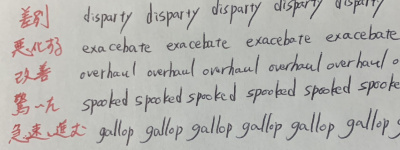 差別 disparty disparty disparty disparty disparty
悪化する exacebate exacebate exacebate exacebate
改善 overhaul overhaul overhaul overhaul overhaul
驚いた spooked spooked spooked spooked spooked spooke
gallop gallop gallop gallop gallop gallop